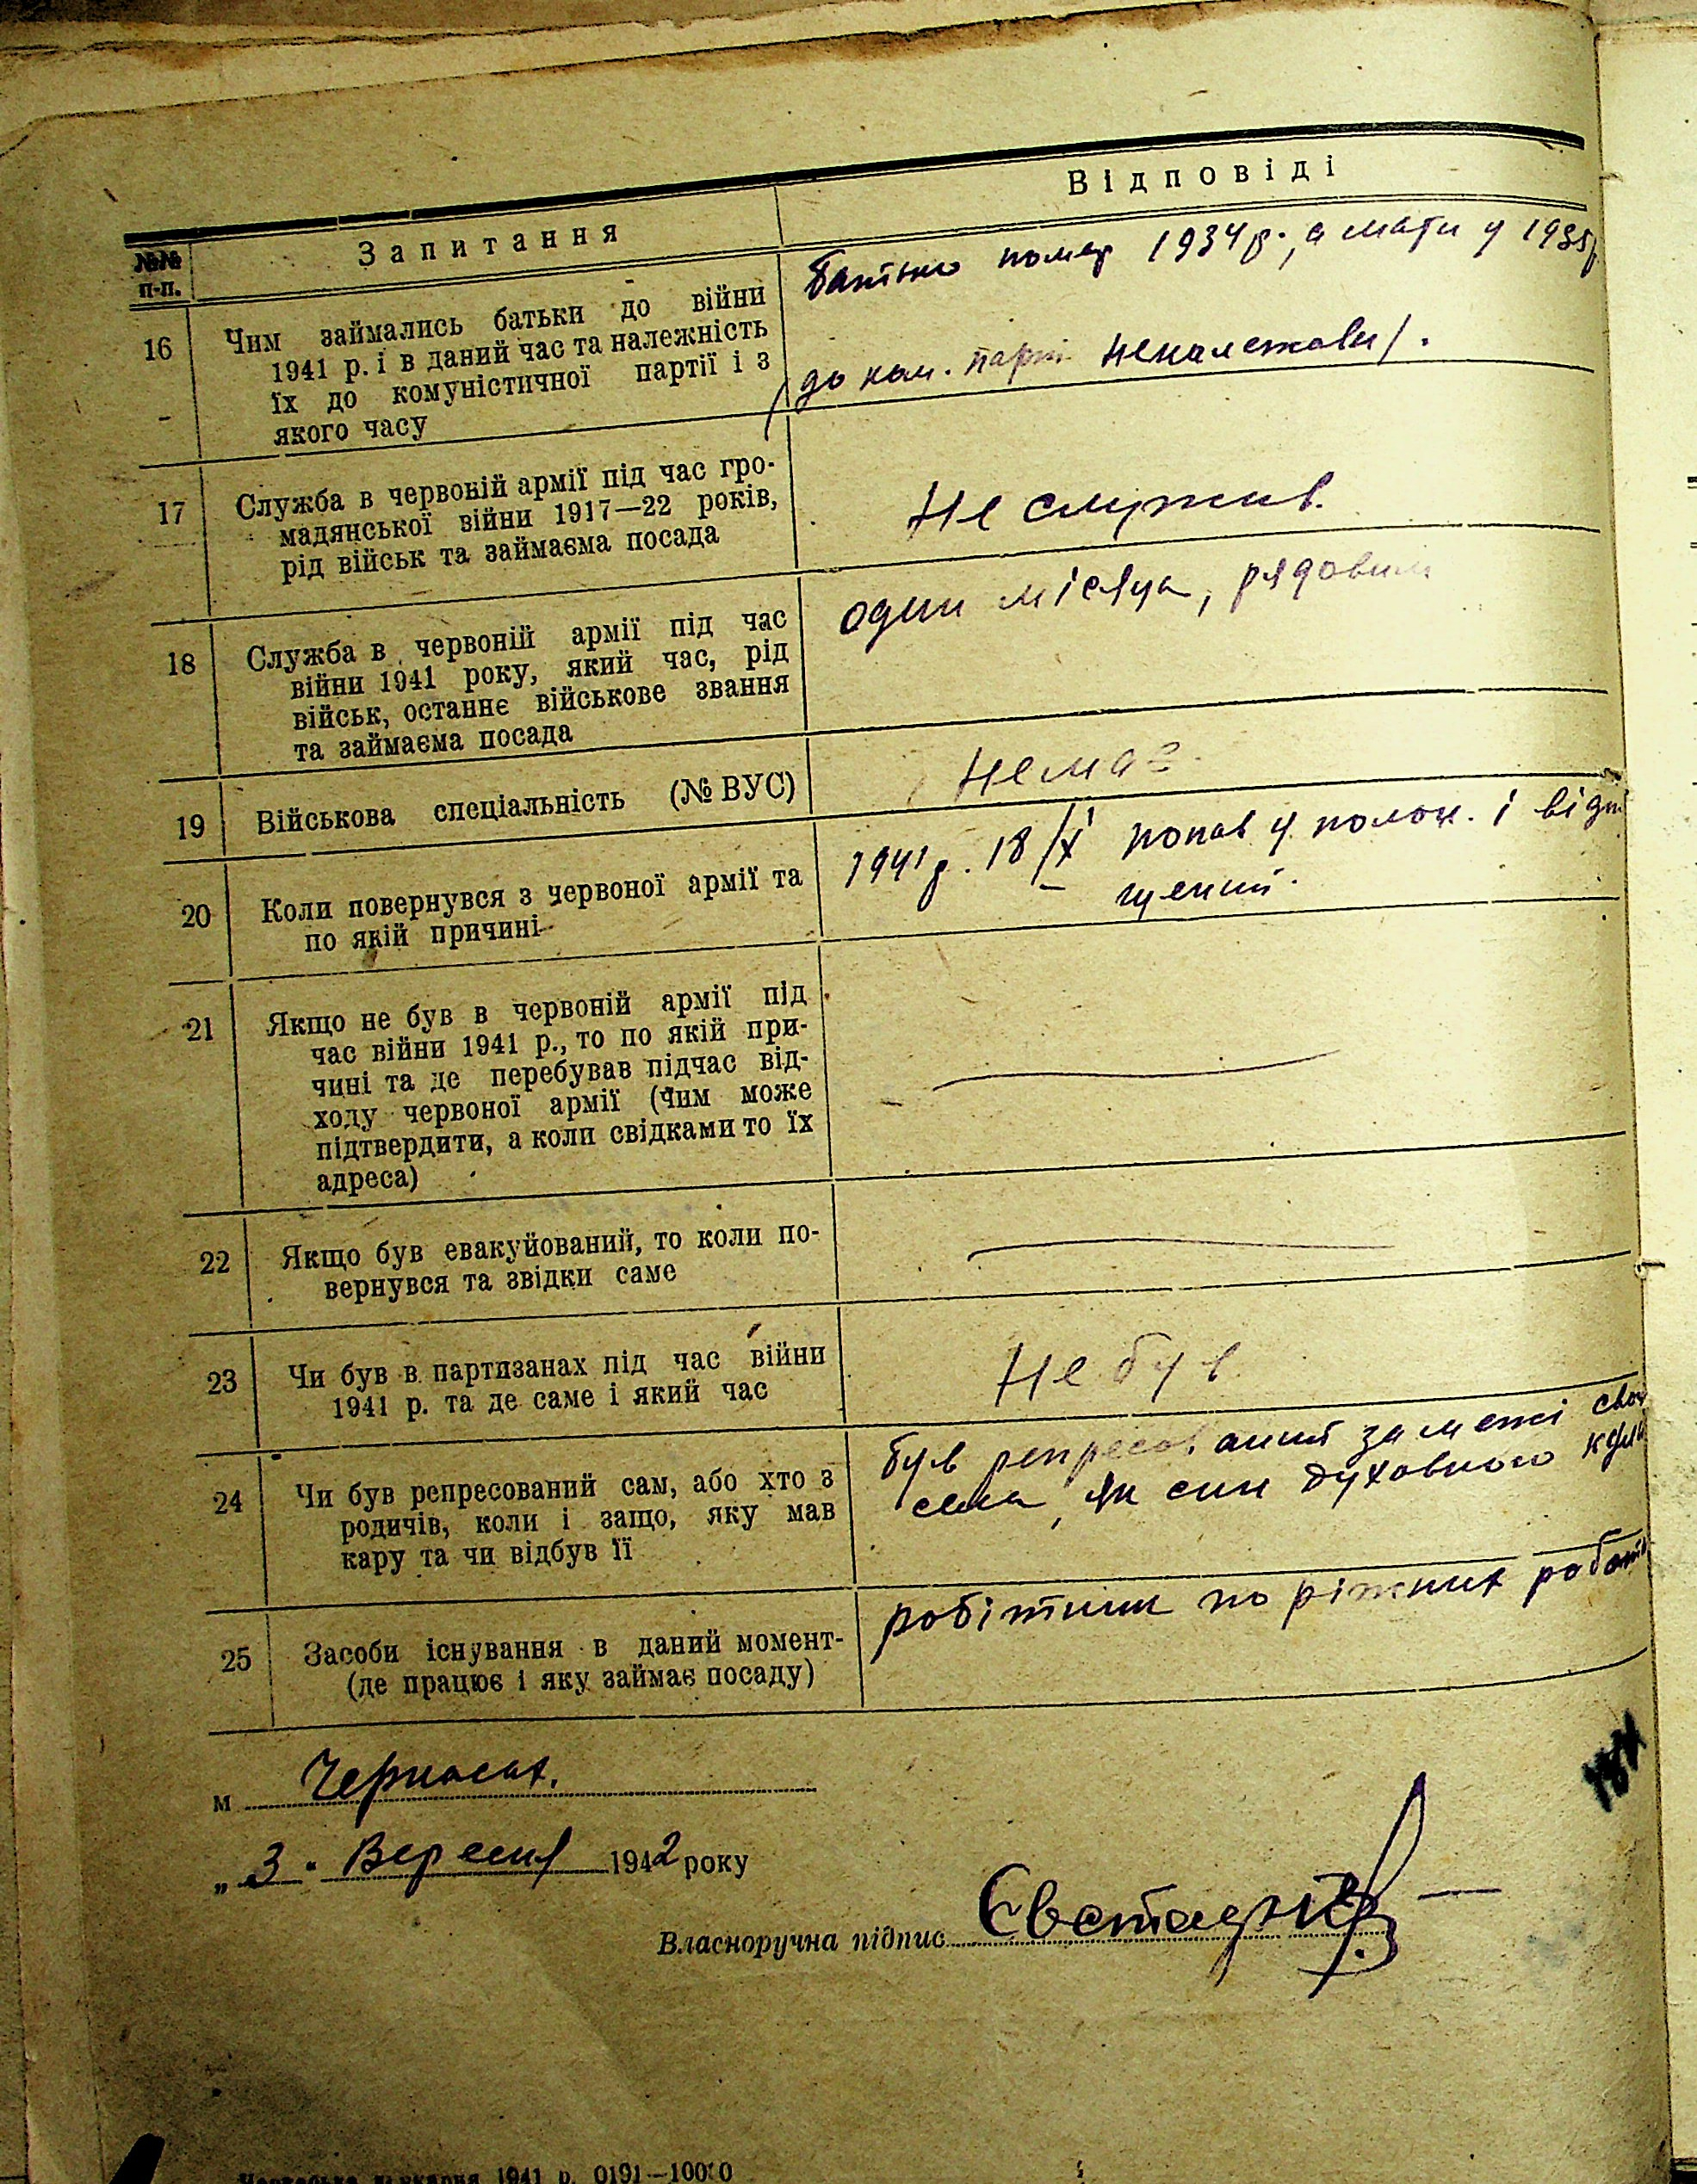 №№ п-п.
Запитання
Відповіді
16
Чим займались батьки до війни
1941 р. і в даний час та належність
їх до комуністичної партії і з
якого часу
батько помер 1934 р., а мати у 1935 р
до ком. партії неналежав/.
17
Служба в червоній армії під час гро-
мадянської війни 1917—22 років,
рід військ та займаєма посада
Не служив.
18
Служба в червоній армії під час
війни 1941 року, який час, рід
військ, останнє військове звання
та займаєма посада
один місяць, рядовим
19
Військова спеціальність (№ ВУС)
Немає.
20
Коли повернувся з червоної армії та
по якій причині
1941 р. 18/ХІ попав у полон. і відпу
щений.
21
Якщо не був в червоній армії під
час війни 1941 р., то по якій при-
чині та де перебував підчас від-
ходу червоної армії (Чим може
підтвердити, а коли свідками то їх
адреса)
22
Якщо був евакуйований, то коли по-
вернувся та звідки саме
23
Чи був в партизанах під час війни
1941 р. та де саме і який час
Не був
24
Чи був репресований сам, або хто з
родичів, коли і защо, яку мав
кару та чи відбув її
був репресований за межі свого
села, як син духовного
25
Засоби існування в даний момент-
(де працює і яку займає посаду)
робітник по ріжних роботах
м Черкаси.
„3" Вересня 1942 року
Власноручна підпис
Черкаська друкарня 1941 р. 0191—10000